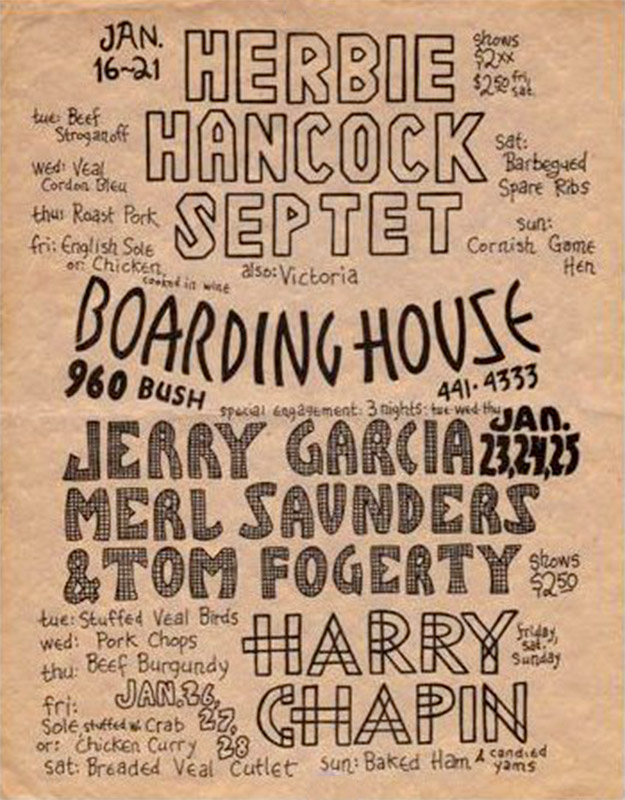 JAN.
16~21
HERBIE
HANCOCK
SEPTET
shows
$2xx
$2.50 fri,
sat.
tue: Beef
Stroganoff
wed: Veal
Cordon Bleu
thu: Roast Pork
fri: English Sole
or: Chicken
cooked in wine
sat:
Barbequed
Spare Ribs
sun:
Cornish Game
Hen
also: Victoria
BOARDING HOUSE
960 BUSH
441·4333
special engagement: 3 nights: tue-wed-thu
JAN.
23,24,25
JERRY GARCIA
MERL SAUNDERS
& TOM FOGERTY
shows
$2.50
tue: Stuffed Veal Birds
wed: Pork Chops
thu: Beef Burgundy
HARRY
CHAPIN
friday,
sat.
sunday
JAN.26,
27,
28
fri:
Sole stuffed w. Crab
or: Chicken Curry
sat: Breaded Veal Cutlet
sun: Baked Ham & candied
yams